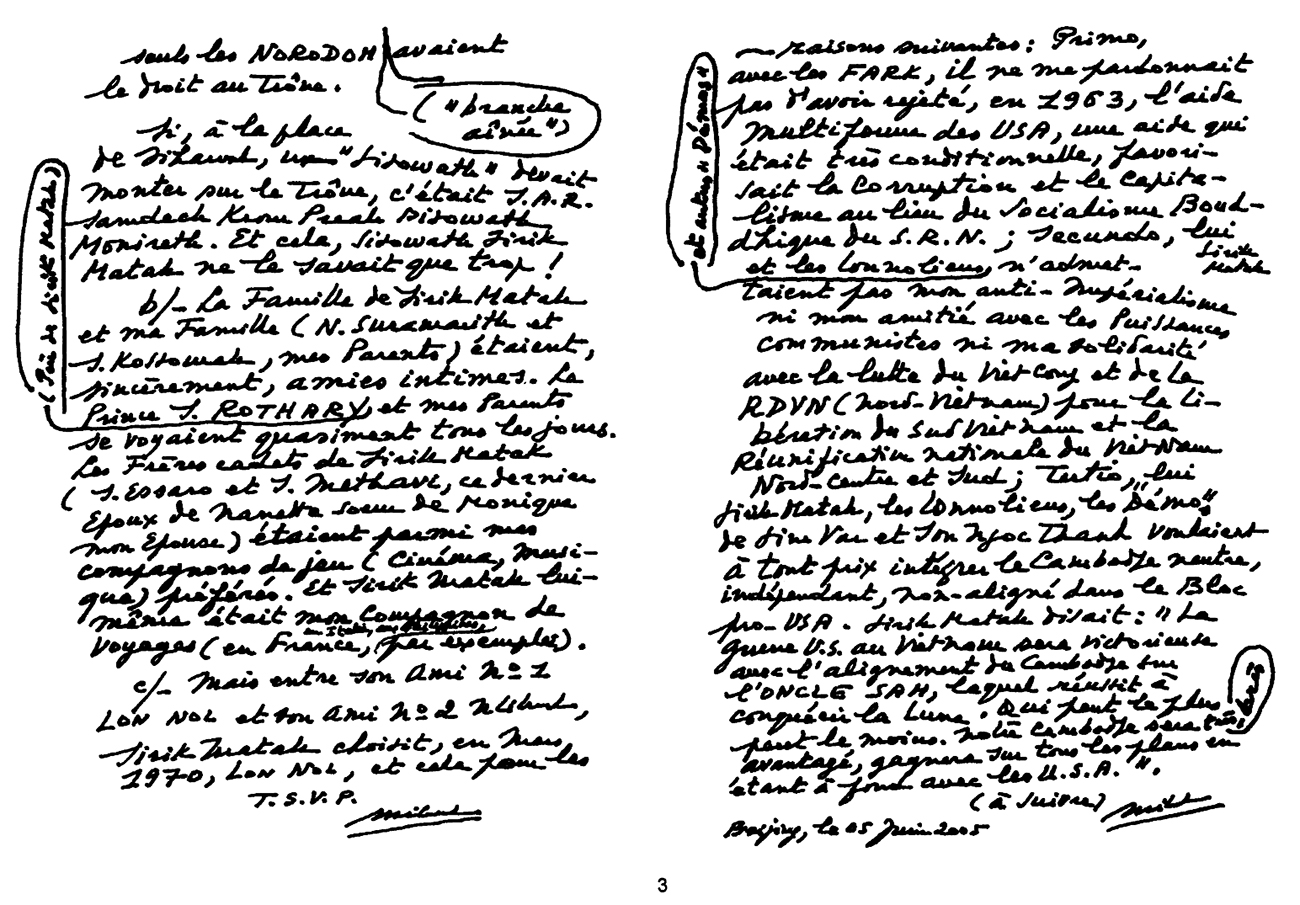 seuls les NORODOM avaient
("branche
aînée")
le droit au Trône.
Si, à la place
de Sihanouk, un "Sisowath" devait
monter sur le Trône, c'était S.A.R.
Samdech Krom Preah Sisowath
Monireth. Et cela, Sisowath Sirik
Matak ne le savait que trop !
b/_ La Famille de Sirik Matak
et ma Famille (N. Suramarith et
S. Kossomak, mes Parents) étaient,
sincèrement, amies intimes. Le
Prince S. ROTHARY, et mes Parents
(Père de Sirik Matak)
se voyaient quasiment tous les jours.
Les Frères cadets de Sirik Matak
(S. Essaro et S. Methavi, ce dernier
Epoux de Nanette soeur de Monique
mon Epouse) étaient parmi mes
compagnons de jeu (Cinéma, Musi-
que) préférés. Et Sirik Matak lui-
même était mon Compagnon de
en Italie, aux
voyages (en France, par exemples).
c/_ Mais entre son Ami Nº 1
LON NOL et son Ami Nº 2 N.Sihanouk,
Sirik Matak choisit, en Mars
1970, LON NOL, et cela pour les
T.S.V.P.
raisons suivantes : Primo,
avec les FARK, il ne me pardonnait
pas d'avoir rejeté, en 1963, l'aide
multiforme des USA, une aide qui
était très conditionnelle, favori-
sait la Corruption et le Capita-
lisme au lieu du Socialisme Boud-
dhique du S.R.N. ; Secundo, lui
Sirik
Matak
et les Lonnoliens, n'admet-
et autres "Démos"
taient pas mon anti-Impérialisme
ni mon amitié avec les Puissances
communistes ni ma solidarité
avec la lutte du Viet Cong et de la
RDVN (Nord-Vietnam) pour la Li-
bération du Sud Viet Nam et la
Réunification nationale du Viet Nam
Nord-Centre et Sud ; Tertio, lui
Sirik Matak, les Lonnoliens, les "Démos"
de Sim Var et Son Ngoc Thanh voulaient
à tout prix intégrer le Cambodge neutre,
indépendant, non-aligné dans le Bloc
pro-USA. Sirik Matak disait : "La
guerre U.S. au Vietnam sera victorieuse
avec l'alignement du Cambodge sur
l'ONCLE SAM, laquel réussit à
conquérir la Lune. Qui peut le plus
peut le moins. Notre Cambodge sera très
avantagé, gagnera sur tous les plans en
étant à fond avec les U.S.A.".
(à suivre)
Beijing, le 05 Juin 2005
3